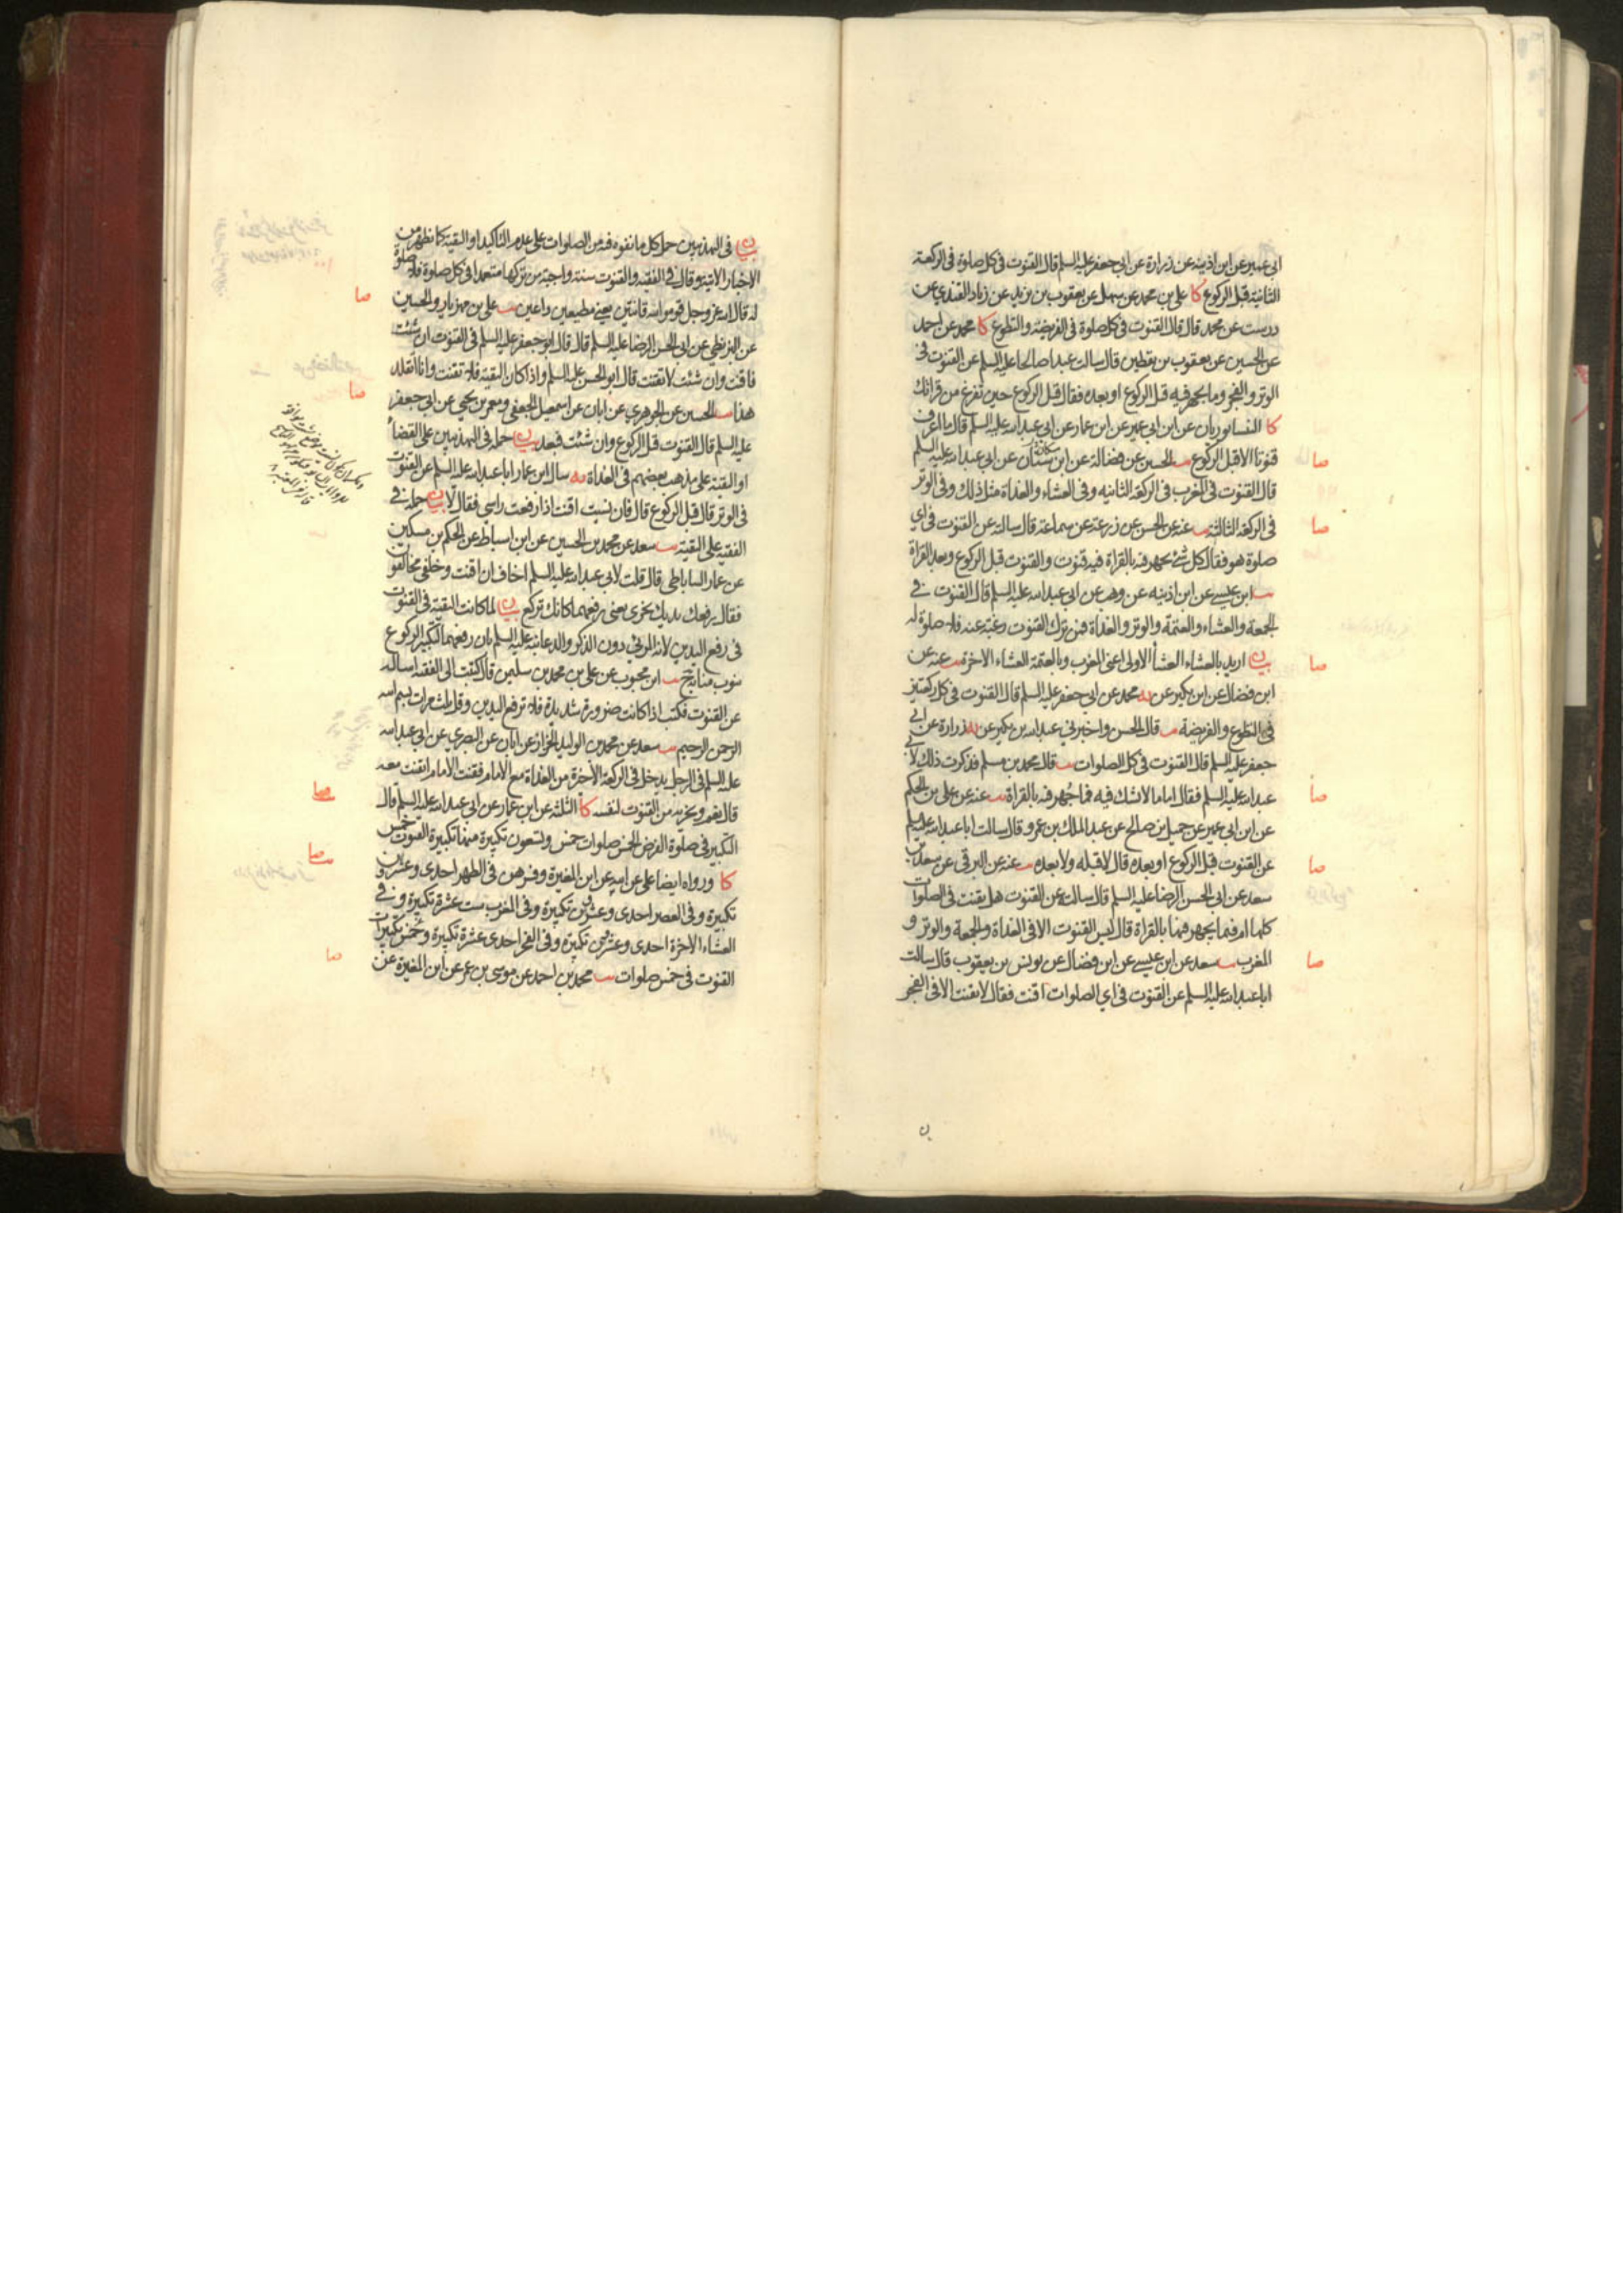 ابي عمير عن ابن اذينه عن زرارة عن ابي جعفر عليه السلم قال القنوت في كل صلوة في الركعة
الثانية قبل الركوع كا علي بن محمد عن سهل عن يعقوب بن يزيد عن زياد القندي عن
درست عن محمد قال قال القنوت في كل صلوة في الفريضة والتطوع كا محمد عن احمد
عن الحسين عن يعقوب بن يقطين قال سالت عبدا صالحا عليه السلم عن القنوت في
الوتر والفجر وما يجهر فيه قبل الركوع او بعده فقال قبل الركوع حين تفرغ من قرائتك
كا النيسابوريان عن ابن ابي عمير عن ابن عمار عن ابي عبد الله عليه السلم قال ما اعرف
قنوتا الا قبل الركوع يب الحسين عن فضالة عن ابن سنان عن ابي عبد الله عليه السلم
قال القنوت في المغرب في الركعة الثانيه وفي العشاء والغداة مثل ذلك وفي الوتر
في الركعة الثالثة يب عنه عن الحسن عن زرعة عن سماعة قال سالته عن القنوت في اي
صلوة هو فقال كل شئ يجهر فيه بالقراة فيه قنوت والقنوت قبل الركوع وبعد القراة
يب ابن عيسى عن ابن اذينه عن وهب عن ابي عبد الله عليه السلم قال القنوت في
الجمعة والعشاء والعتمة والوتر والغداة فمن ترك القنوت رغبة عنه فلا صلوة له
بيان اريد بالعشاء العشاء الاولى اعني المغرب وبالعتمة العشاء الاخرة يب عنه عن
ابن فضال عن ابن بكير عن يه محمد عن ابي جعفر عليه السلم قال القنوت في كل ركعتين
في التطوع والفريضة يب قال الحسن واخبرني عبد الله بن بكير عن يه زرارة عن ابي
جعفر عليه السلم قال القنوت في كل الصلوات يب قال محمد بن مسلم فذكرت ذلك لابي
عبد الله عليه السلم فقال اما ما لا شك فيه فما جهر فيه بالقراة يب عنه عن علي بن الحكم
عن ابن ابي عمير عن جميل بن صالح عن عبد الملك بن عمرو قال سالت ابا عبد الله عليه السلم
عن القنوت قبل الركوع او بعده قال لا قبله ولا بعده يب عنه عن البرقي عن سعد بن
سعد عن ابي الحسن الرضا عليه السلم قال سالته عن القنوت هل يقنت في الصلوات
كلها ام فيما يجهر فيها بالقراة قال ليس القنوت الا في الغداة والجمعة والوتر و
المغرب يب سعد عن ابن عيسى عن ابن فضال عن يونس بن يعقوب قال سالت
ابا عبد الله عليه السلم عن القنوت في اي الصلوات اقنت فقال لا تقنت الا في الفجر
بيان في التهذيبين حمل كل ما نفوه فيه من الصلوات على عدم التاكيد او التقية كما يظهر من
الاخبار الاتية وقال في الفقيه والقنوت سنة واجبة من تركها متعمدا في كل صلوة فلا صلوة
له قال الله عز وجل قوموا لله قانتين يعني مطيعين داعين يب علي بن مهزيار والحسين
عن البزنطي عن ابي الحسن الرضا عليه السلم قال قال ابو جعفر عليه السلم في القنوت ان شئت
فاقنت وان شئت لا تقنت قال ابو الحسن عليه السلم واذا كان التقية فلا تقنت وانا اتقلد
هذا يب الحسين عن الجوهري عن ابان عن اسمعيل الجعفي ومعمر بن يحيى عن ابي جعفر
عليه السلم قال القنوت قبل الركوع وان شئت فبعد بيان حمله في التهذيبين على القضاء
او التقية على مذهب بعضهم في الغداة يه سال ابن عمار ابا عبد الله عليه السلم عن القنوت
في الوتر قال قبل الركوع قال فان نسيت اقنت اذا رفعت راسي فقال لا بيان حمله في
الفقيه على التقية يب سعد عن محمد بن الحسين عن ابن اسباط عن الحكم بن مسكين
عن عمار الساباطي قال قلت لابي عبد الله عليه السلم اخاف ان اقنت وخلفي مخالفون
فقال رفعك يديك يجزي يعني رفعهما كانك تركع بيان لما كانت التقية في القنوت
في رفع اليدين لانه المرئي دون الذكر والدعاء نبه عليه السلم بان رفعهما لتكبير الركوع
ينوب منابه يب ابن محبوب عن علي بن محمد بن سليمن قال كتبت الى الفقيه اساله
عن القنوت فكتب اذا كانت ضرورة شديدة فلا ترفع اليدين وقل ثلث مرات بسم الله
الرحمن الرحيم يب سعد عن محمد بن الوليد الخزاز عن ابان عن البصري عن ابي عبد الله
عليه السلم في الرجل يدخل في الركعة الاخرة من الغداة مع الامام فقنت الامام ايقنت معه
قال نعم ويجزيه من القنوت لنفسه كا الثلثة عن ابن عمار عن ابي عبد الله عليه السلم قال
التكبير في صلوة الفرض الخمس صلوات خمس وتسعون تكبيرة منها تكبيرة القنوت خمس
كا ورواه ايضا علي عن ابيه عن ابن المغيرة وفسرهن في الظهر احدى وعشرين
تكبيرة وفي العصر احدى وعشرين تكبيرة وفي المغرب ست عشرة تكبيرة وفي
العشاء الاخرة احدى وعشرين تكبيرة وفي الفجر احدى عشرة تكبيرة وخمس تكبيرات
القنوت في خمس صلوات يب محمد بن احمد عن موسى بن عمر عن ابن المغيرة عن